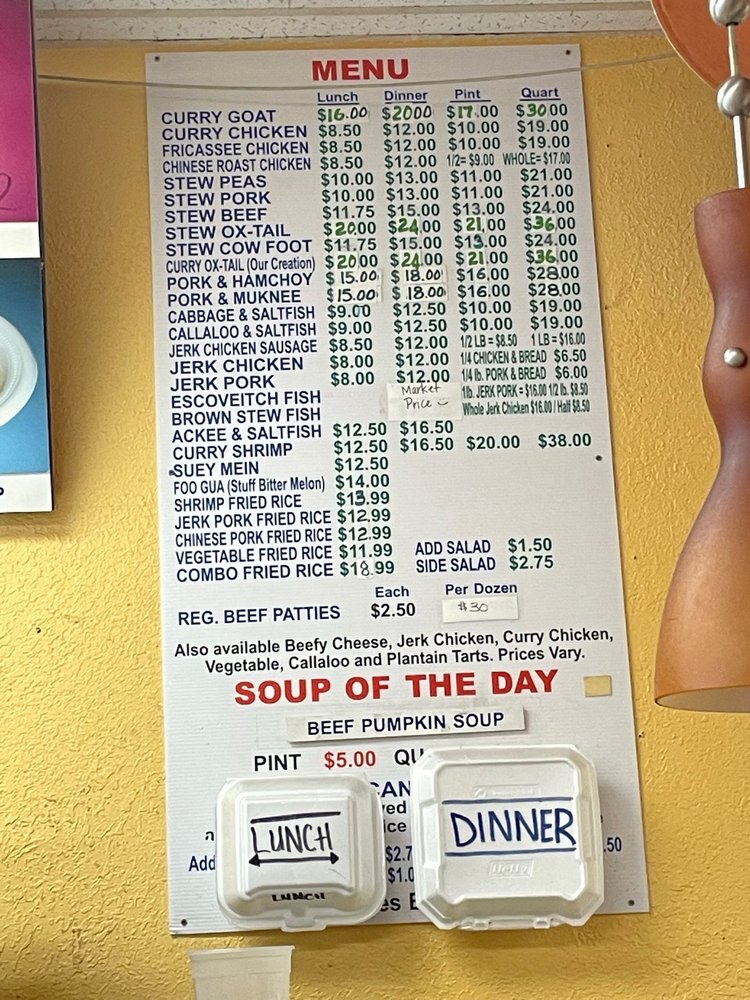 MENU
Lunch Dinner Pint Quart
CURRY GOAT $16.00 $20.00 $17.00 $30.00
CURRY CHICKEN $8.50 $12.00 $10.00 $19.00
FRICASSEE CHICKEN $8.50 $12.00 $10.00 $19.00
CHINESE ROAST CHICKEN $8.50 $12.00 1/2= $9.00 WHOLE= $17.00
STEW PEAS $10.00 $13.00 $11.00 $21.00
STEW PORK $10.00 $13.00 $11.00 $21.00
STEW BEEF $11.75 $15.00 $13.00 $24.00
STEW OX-TAIL $20.00 $24.00 $21.00 $36.00
STEW COW FOOT $11.75 $15.00 $13.00 $24.00
CURRY OX-TAIL (Our Creation) $20.00 $24.00 $21.00 $36.00
PORK & HAMCHOY $15.00 $18.00 $16.00 $28.00
PORK & MUKNEE $15.00 $18.00 $16.00 $28.00
CABBAGE & SALTFISH $9.00 $12.50 $10.00 $19.00
CALLALOO & SALTFISH $9.00 $12.50 $10.00 $19.00
JERK CHICKEN SAUSAGE $8.50 $12.00 1/2 LB = $8.50 1 LB = $16.00
JERK CHICKEN $8.00 $12.00 1/4 CHICKEN & BREAD $6.50
JERK PORK $8.00 $12.00 1/4 lb. PORK & BREAD $6.00
ESCOVEITCH FISH Market Price 1lb. JERK PORK = $16.00 1/2 lb. $8.50
BROWN STEW FISH Whole Jerk Chicken $16.00 / Half $8.50
ACKEE & SALTFISH $12.50 $16.50
CURRY SHRIMP $12.50 $16.50 $20.00 $38.00
SUEY MEIN $12.50
FOO GUA (Stuff Bitter Melon) $14.00
SHRIMP FRIED RICE $13.99
JERK PORK FRIED RICE $12.99
CHINESE PORK FRIED RICE $12.99
VEGETABLE FRIED RICE $11.99 ADD SALAD $1.50
COMBO FRIED RICE $18.99 SIDE SALAD $2.75
Each Per Dozen
REG. BEEF PATTIES $2.50 $30
Also available Beefy Cheese, Jerk Chicken, Curry Chicken,
Vegetable, Callaloo and Plantain Tarts. Prices Vary.
SOUP OF THE DAY
BEEF PUMPKIN SOUP
PINT $5.00 QU
CAN
ved
ice
Add $2.7 .50
$1.0
es
LUNCH
LUNCH
DINNER